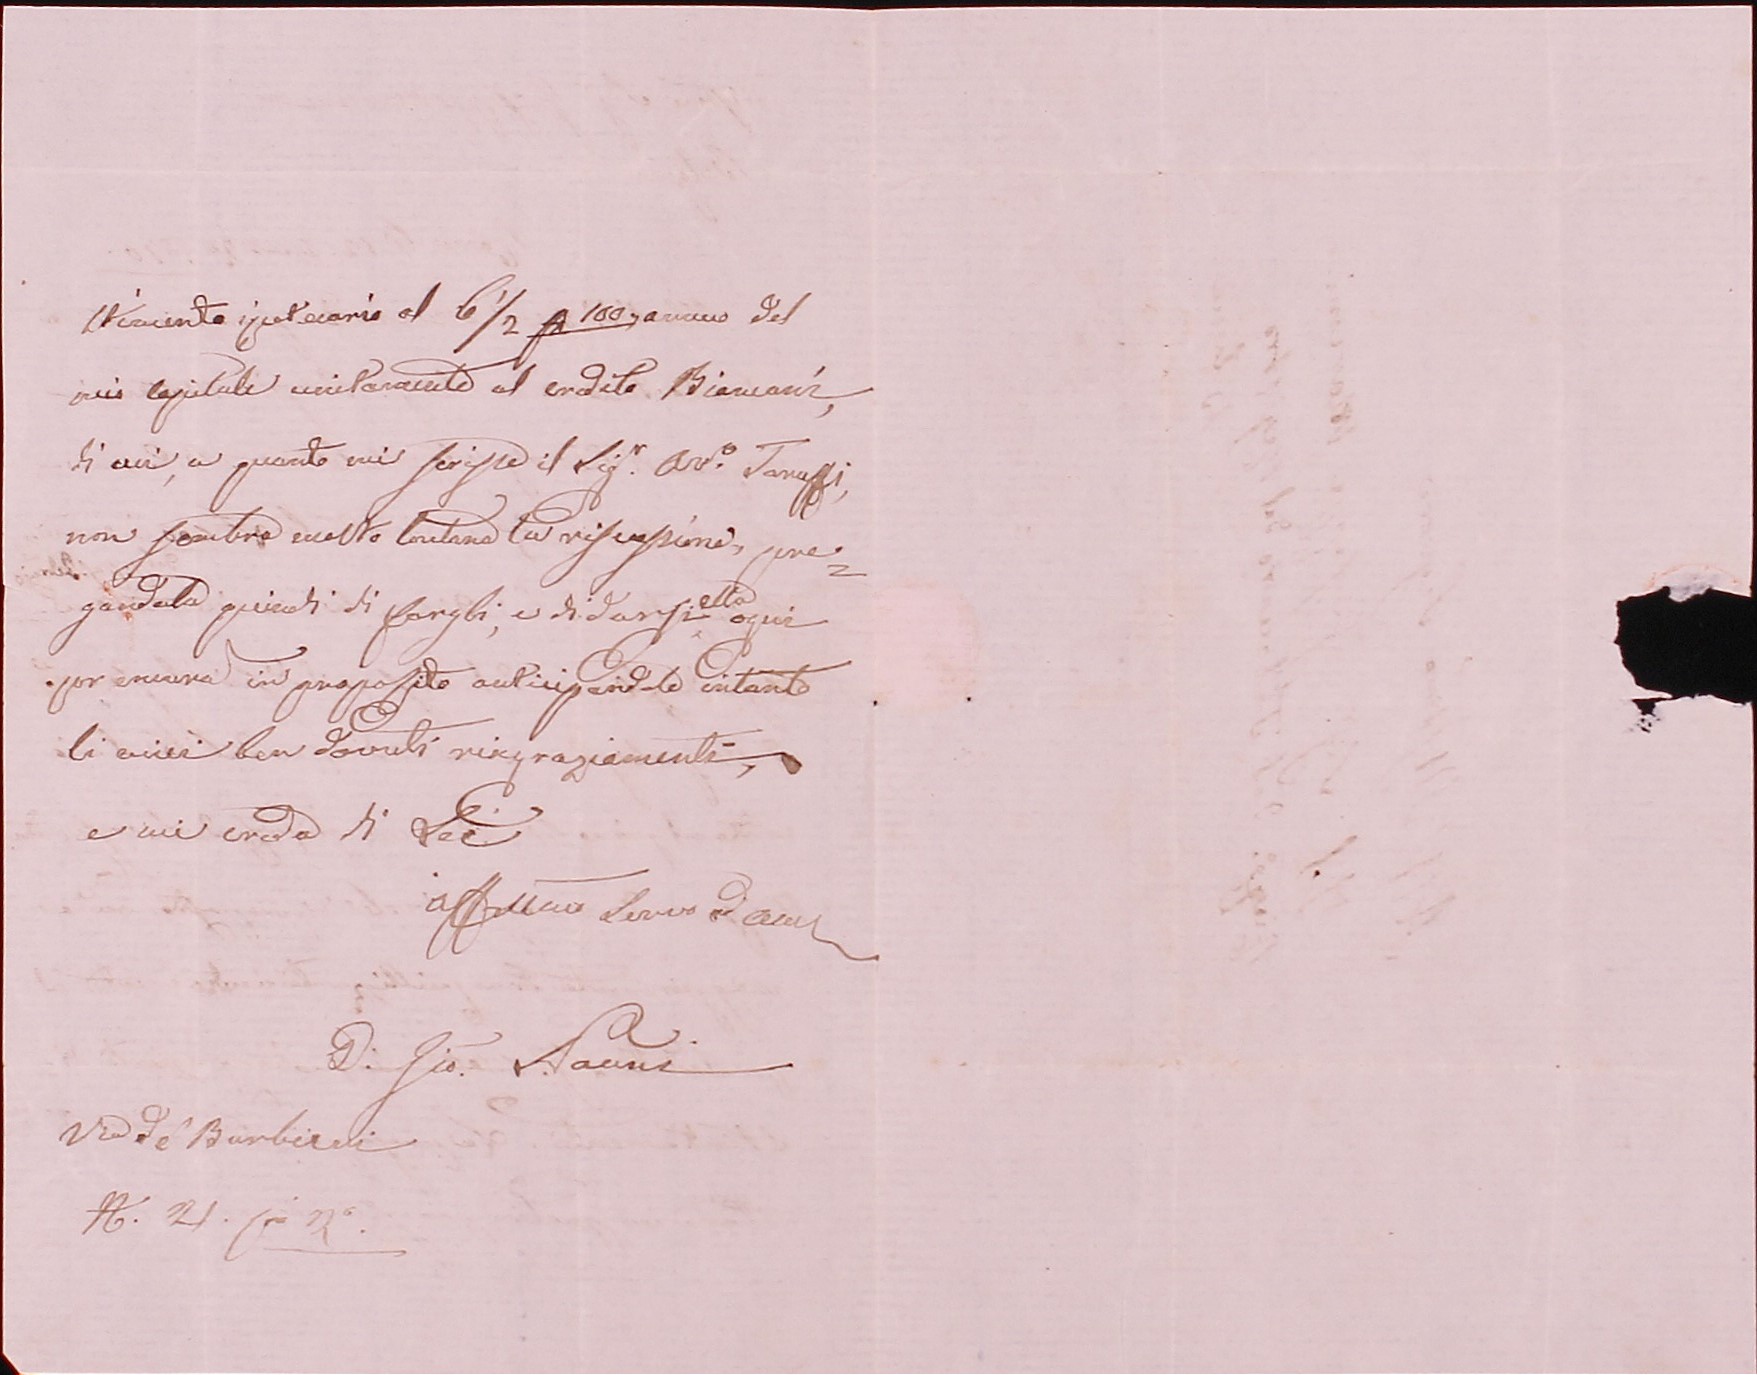 stimento ipotecario al 6 1/2 p 100 annuo del
mio capitale unitamente al credito Biancani,
di cui, a quanto mi scrisse il Sigr. Avvo. Taruffi,
non sembra molto lontana la riscossione, pre=
gandola quindi di fargli, e di darsi ella ogni
premura in proposito anticipandole intanto
li miei ben dovuti ringraziamenti,
e mi creda di Lei
affmo Servo ed Am
D. Gio. Nanni
Via de' Barbieri
N. 21. po 2o.